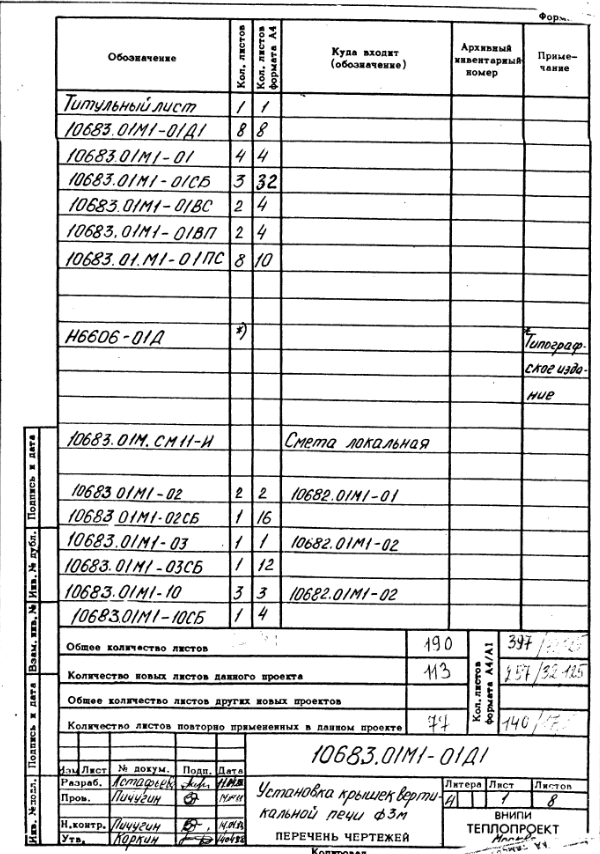 Обозначение Кол. листов Кол. листов формата А4 Куда входит (обозначение) Архивный инвентарный номер Приме-чание
Титульный лист 1 1
10683.01М1-01Д1 8 8
10683.01М1-01 4 4
10683.01М1-01СБ 3 32
10683.01М1-01ВС 2 4
10683.01М1-01ВП 2 4
10683.01.М1-01ПС 8 10
Н6606-01Д *) * Типограф-
ское изда-
ние
10683.01М.СМ11-И Смета локальная
10683 01М1-02 2 2 10682.01М1-01
10683 01М1-02СБ 1 16
10683.01М1-03 1 1 10682.01М1-02
10683.01М1-03СБ 1 12
10683.01М1-10 3 3 10682.01М1-02
10683.01М1-10СБ 1 4
Общее количество листов 190 Кол.листов формата А4/А1 397
Количество новых листов данного проекта 113 257/32.125
Общее количество листов других новых проектов
Количество листов повторно примененных в данном проекте 77 140
10683.01М1-01Д1
Изм Лист № докум. Подп. Дата
Разраб. Астафьев
Пров. Пичугин
Н.контр. Пичугин
Утв. Коркин
Установка крышек верти-
кальной печи ф3м
ПЕРЕЧЕНЬ ЧЕРТЕЖЕЙ
Литера Лист Листов
И 1 8
ВНИПИ
ТЕПЛОПРОЕКТ
Москва
Копировал
Подпись и дата
Инв. № дубл.
Взам. инв. №
Подпись и дата
Инв. № подл.